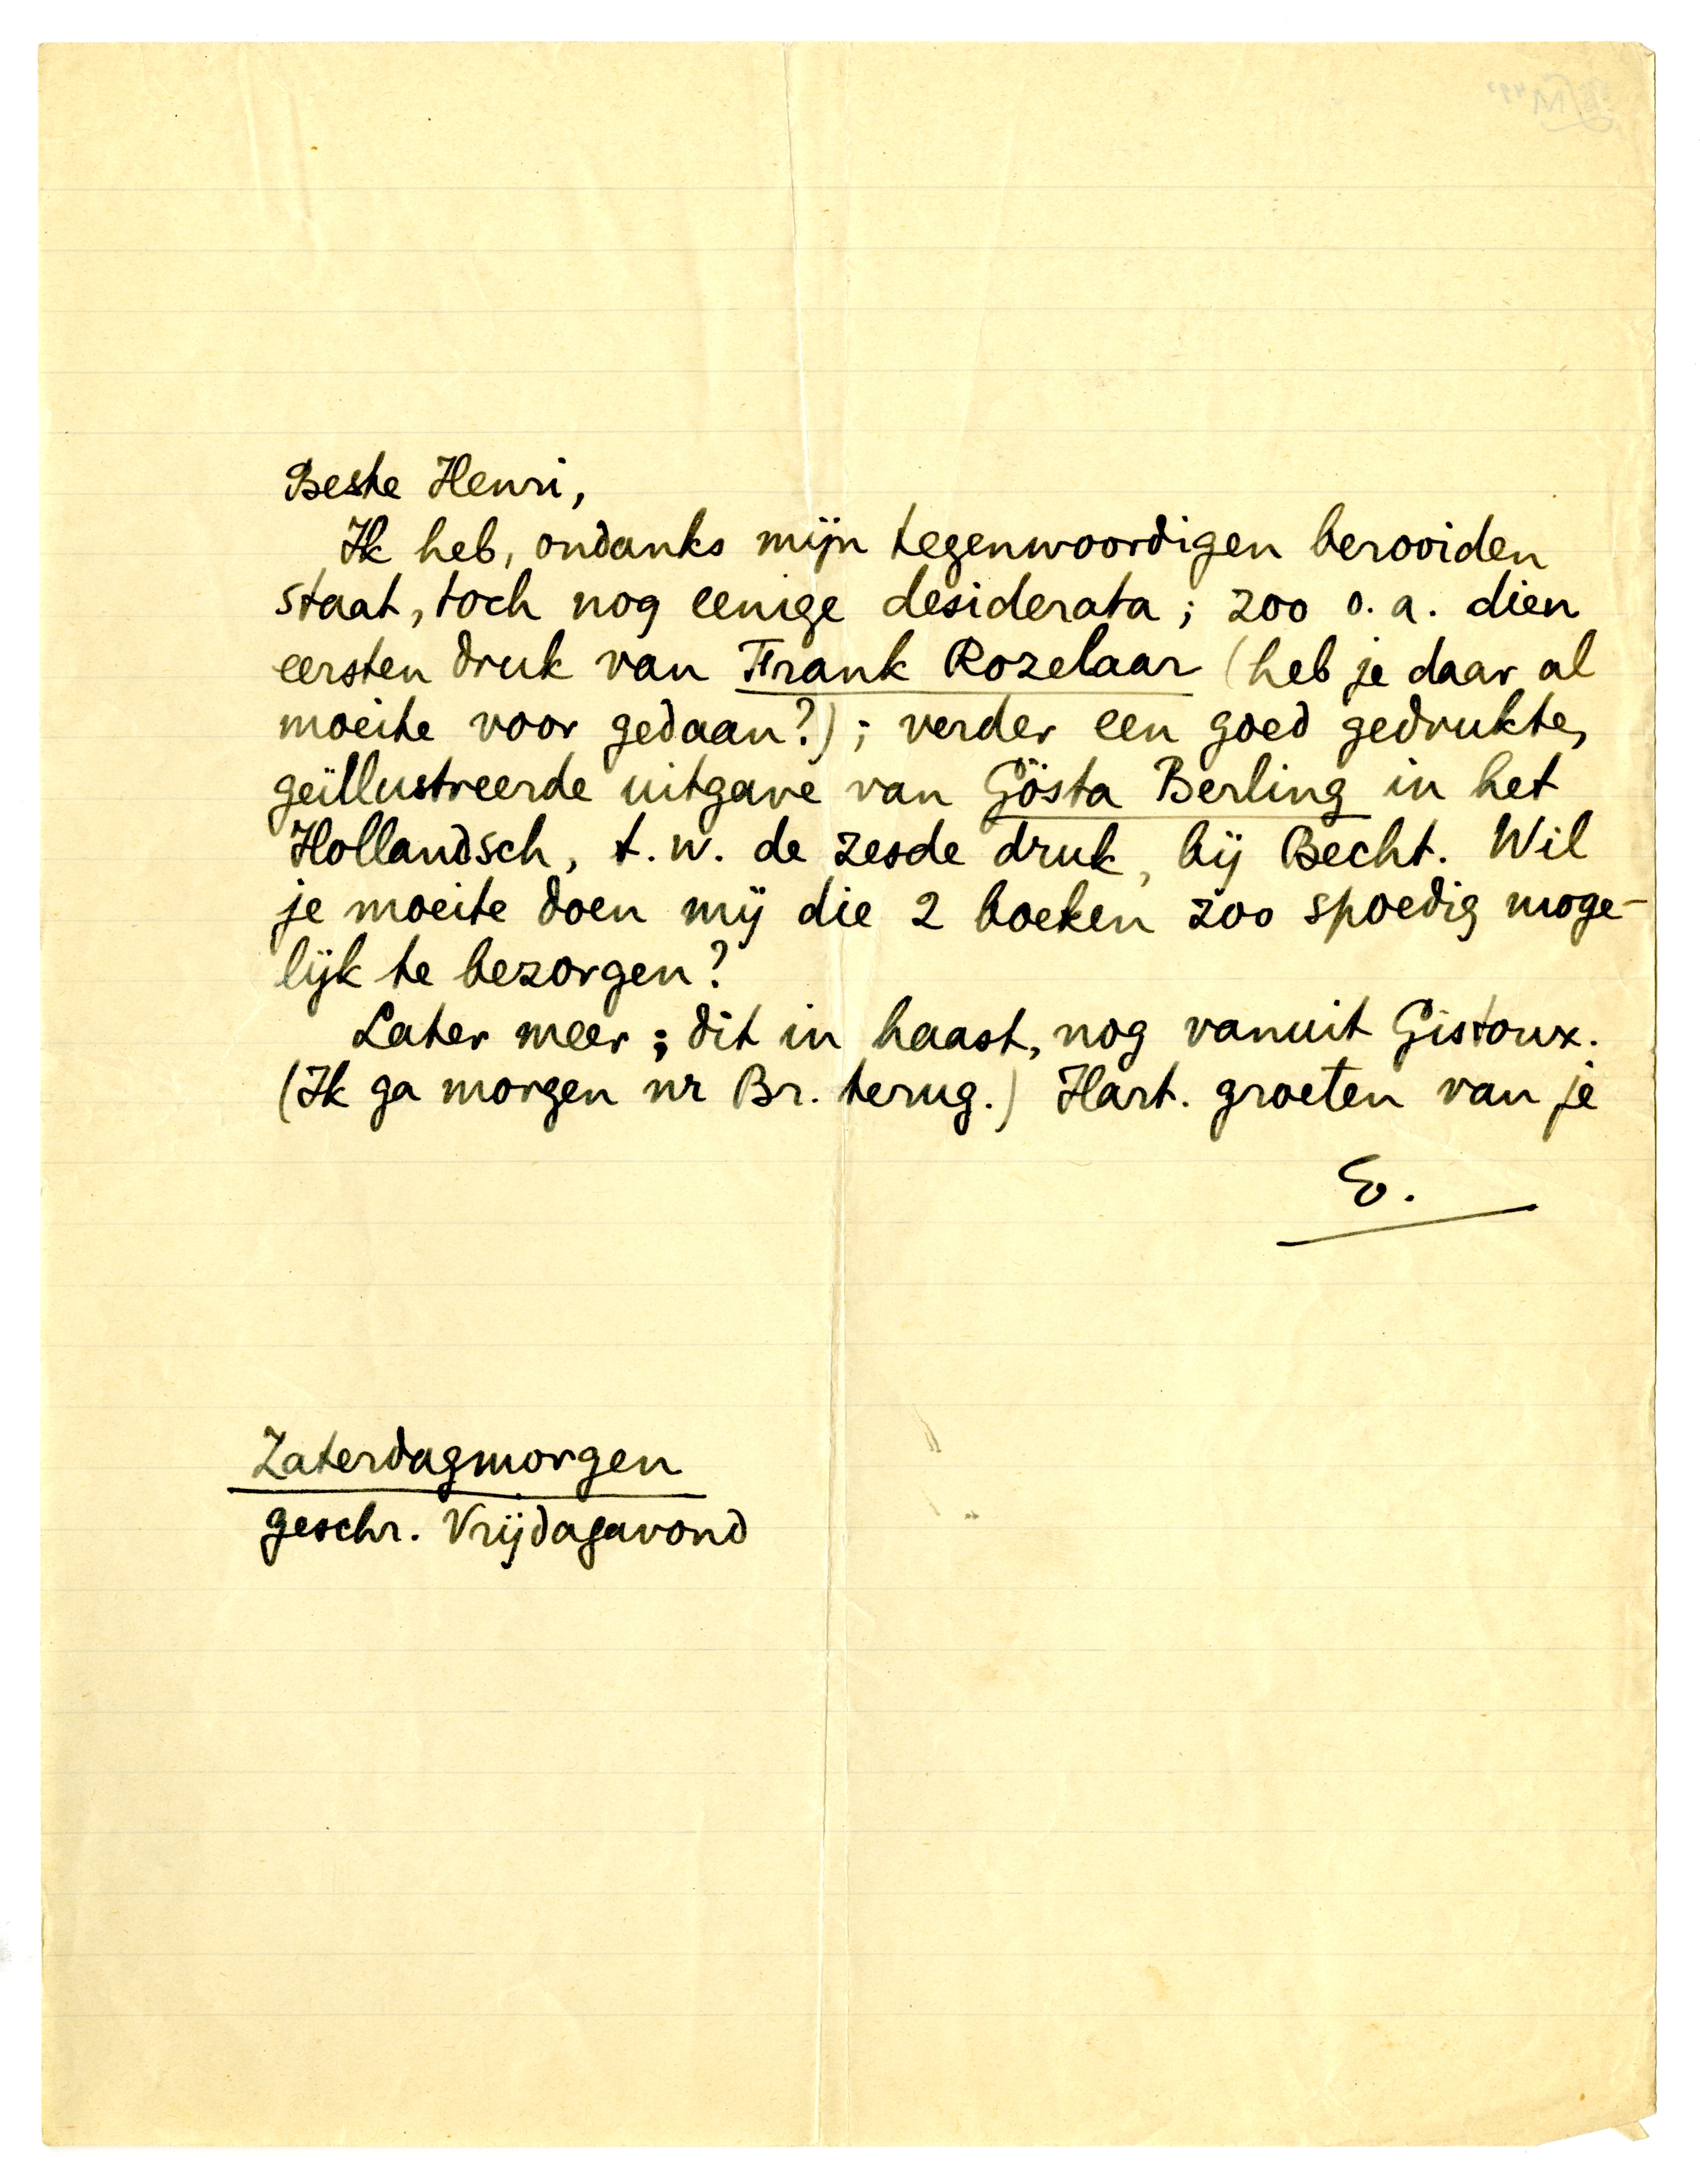 Beste Henri,
Ik heb, ondanks mijn tegenwoordigen berooiden
staat, toch nog eenige desiderata; zoo o.a. dien
eersten druk van Frank Rozelaar (heb je daar al
moeite voor gedaan?); verder een goed gedrukte,
geïllustreerde uitgave van Gösta Berling in het
Hollandsch, t.w. de zesde druk, bij Becht. Wil
je moeite doen mij die 2 boeken zoo spoedig moge-
lijk te bezorgen?
Later meer; dit in haast, nog vanuit Gistoux.
(Ik ga morgen nr Br. terug.) Hart. groeten van je
E.
Zaterdagmorgen
geschr. Vrijdagavond